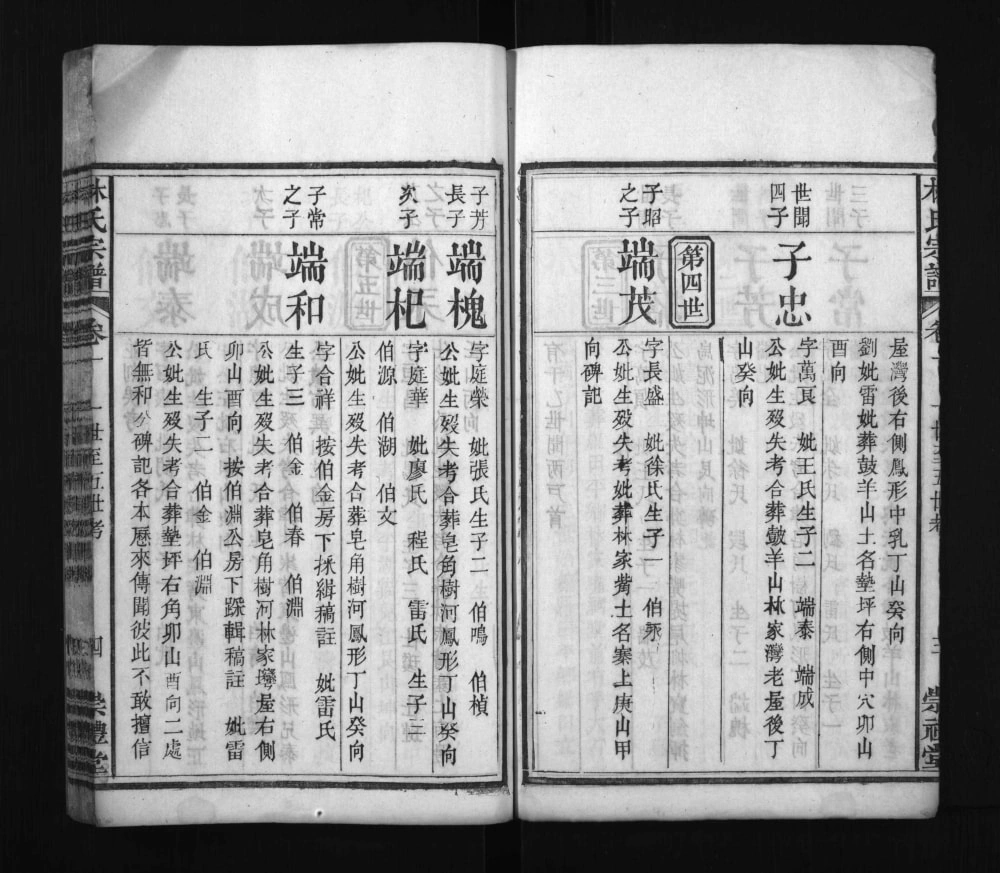 屋灣後右側鳳形中乳丁山癸向
劉妣雷妣葬鼓羊山土名墊坪右側中穴卯山
酉向
世聞
四子
子忠
字萬良　妣王氏生子二　端泰　端成
公妣生歿失考合葬鼓羊山林家灣老屋後丁
山癸向
第四世
子昭
之子
端茂
字長盛　妣徐氏生子一　伯錸
公妣生歿失考妣葬林家觜土名寨上庚山甲
向碑記
子芳
長子
端槐
字庭榮　妣張氏生子二　伯鳴　伯楨
公妣生歿失考合葬皂角樹河鳳形丁山癸向
次子
端杞
字庭華　妣廖氏　程氏　雷氏　生子三
伯源　伯湖　伯文
公妣生歿失考合葬皂角樹河鳳形丁山癸向
子常
之子
端和
字合祥　按伯金房下採緝稿註　妣雷氏
生子三　伯金　伯春　伯淵
公妣生歿失考合葬皂角樹河林家灣屋右側
卯山酉向　按伯淵公房下採輯稿註　妣雷
氏　生子二　伯金　伯淵
公妣生歿失考合葬墊坪右角卯山酉向二處
皆無和公碑記各本歷來傳聞彼此不敢擅信
林氏宗譜
卷一
一世至五世考
四
崇禮堂